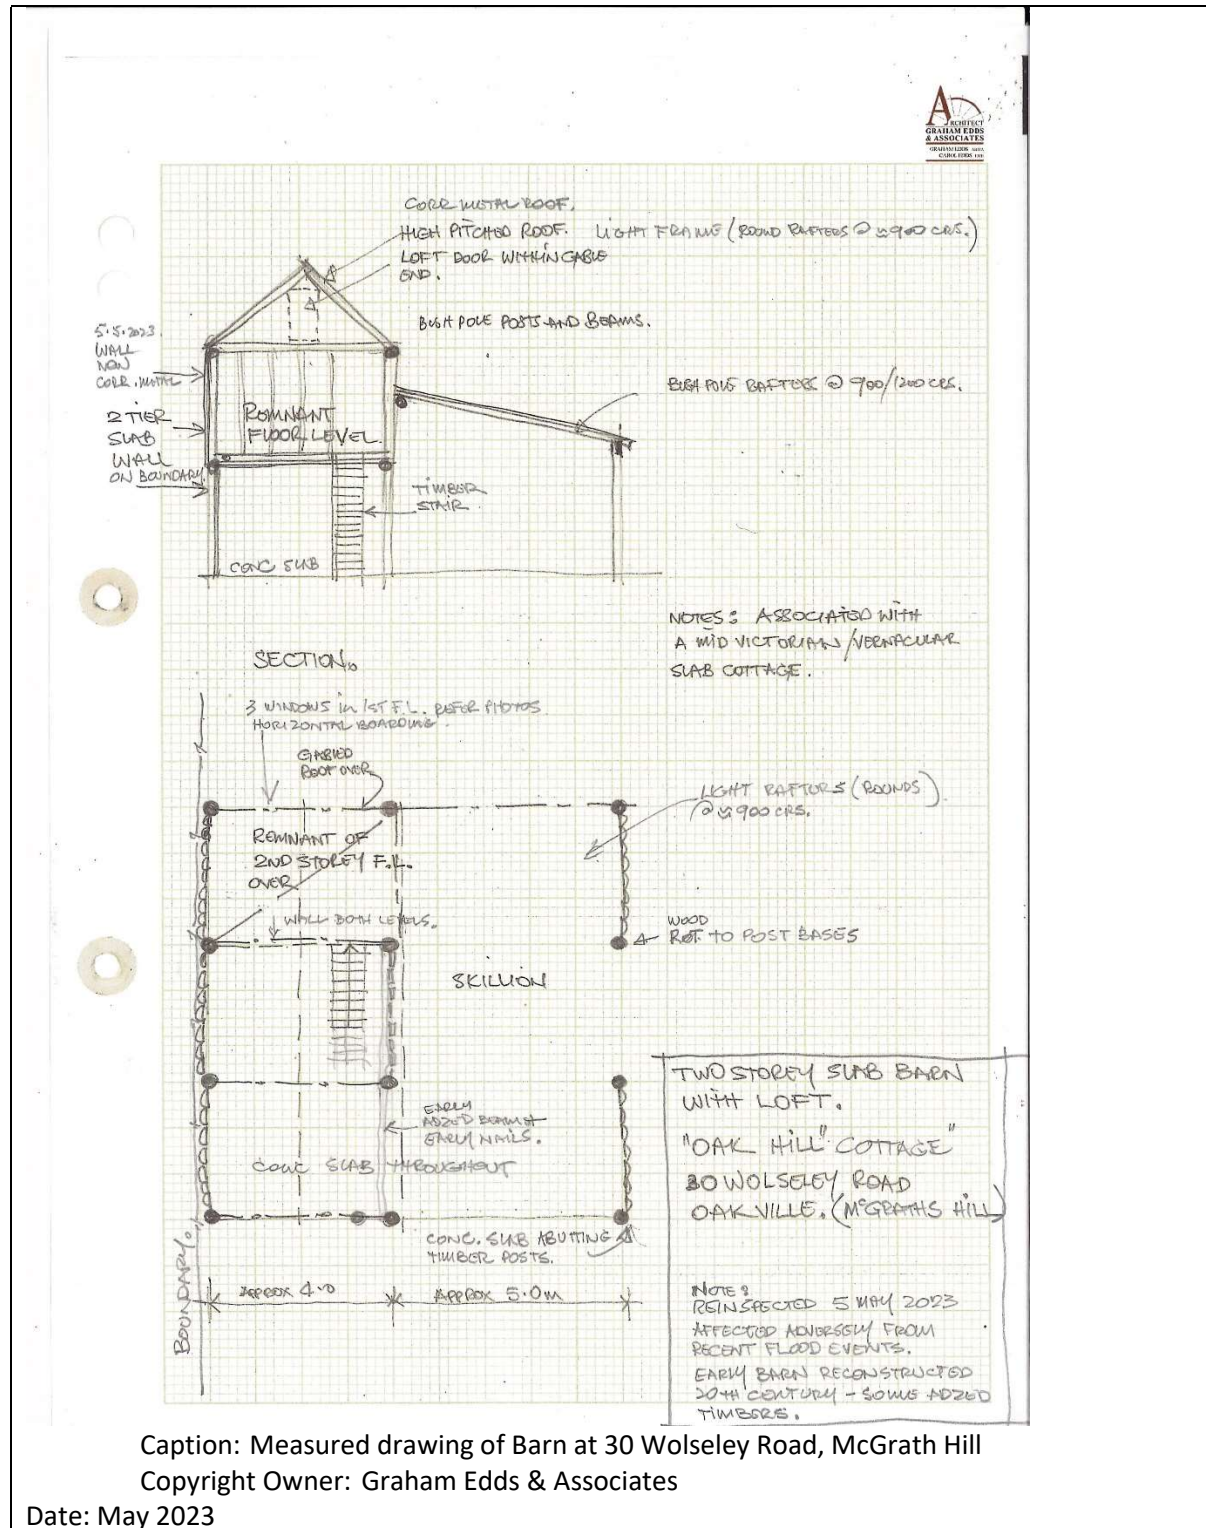 ARCHITECT
GRAHAM EDDS
& ASSOCIATES
GRAHAM EDDS
CAROL EDDS
CORR METAL ROOF.
HIGH PITCHED ROOF. LIGHT FRAME (ROUND RAFTERS @ ≈900 CRS.)
LOFT DOOR WITHIN GABLE
END.
BUSH POLE POSTS AND BEAMS.
5.5.2023.
WALL
NOW
CORR. METAL
2 TIER
SLAB
WALL
ON BOUNDARY.
REMNANT
FLOOR LEVEL.
BUSH POLE RAFTERS @ 900/1200 CRS.
TIMBER
STAIR.
CONC SLAB
SECTION.
NOTES: ASSOCIATED WITH
A MID VICTORIAN/VERNACULAR
SLAB COTTAGE.
3 WINDOWS in 1ST F.L. REFER PHOTOS
HORIZONTAL BOARDING.
GABLED
ROOF OVER
LIGHT RAFTORS (ROUNDS)
@ ≈900 CRS.
REMNANT OF
2ND STOREY F.L.
OVER
WALL BOTH LEVELS.
WOOD
ROT TO POST BASES
SKILLION
EARLY
ADZED BEAM &
EARLY NAILS.
CONC SLAB THROUGHOUT
CONC. SLAB ABUTTING
TIMBER POSTS.
BOUNDARY.
APPROX 4.0
APPROX 5.0m
TWO STOREY SLAB BARN
WITH LOFT.
"OAK HILL" COTTAGE"
30 WOLSELEY ROAD
OAKVILLE. (McGRATHS HILL)
NOTE:
REINSPECTED 5 MAY 2023
AFFECTED ADVERSELY FROM
RECENT FLOOD EVENTS.
EARLY BARN RECONSTRUCTED
20TH CENTURY - SOME ADZED
TIMBERS.
Caption: Measured drawing of Barn at 30 Wolseley Road, McGrath Hill
Copyright Owner: Graham Edds & Associates
Date: May 2023